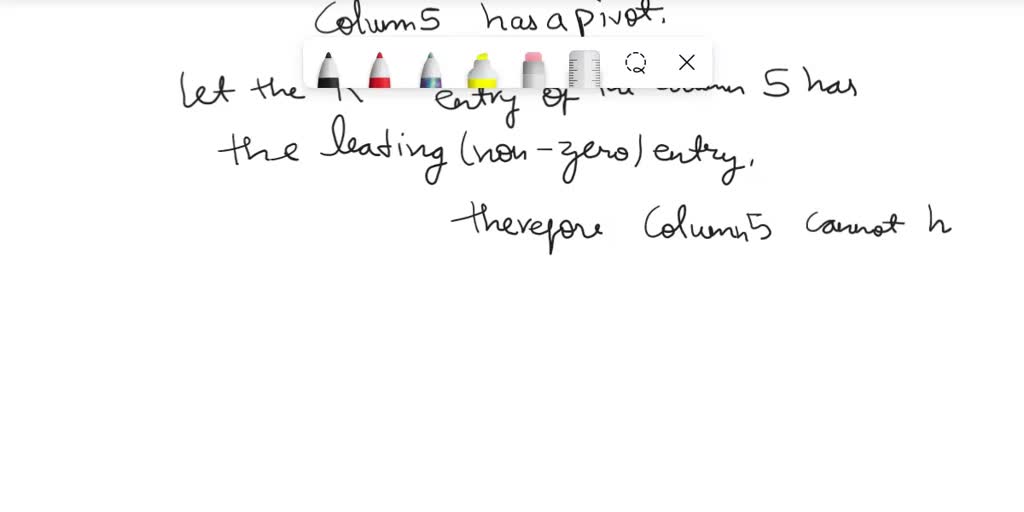 Column 5 has a pivot.
Let the entry of 5 has
the leading (non-zero) entry.
therefore Column 5 cannot h